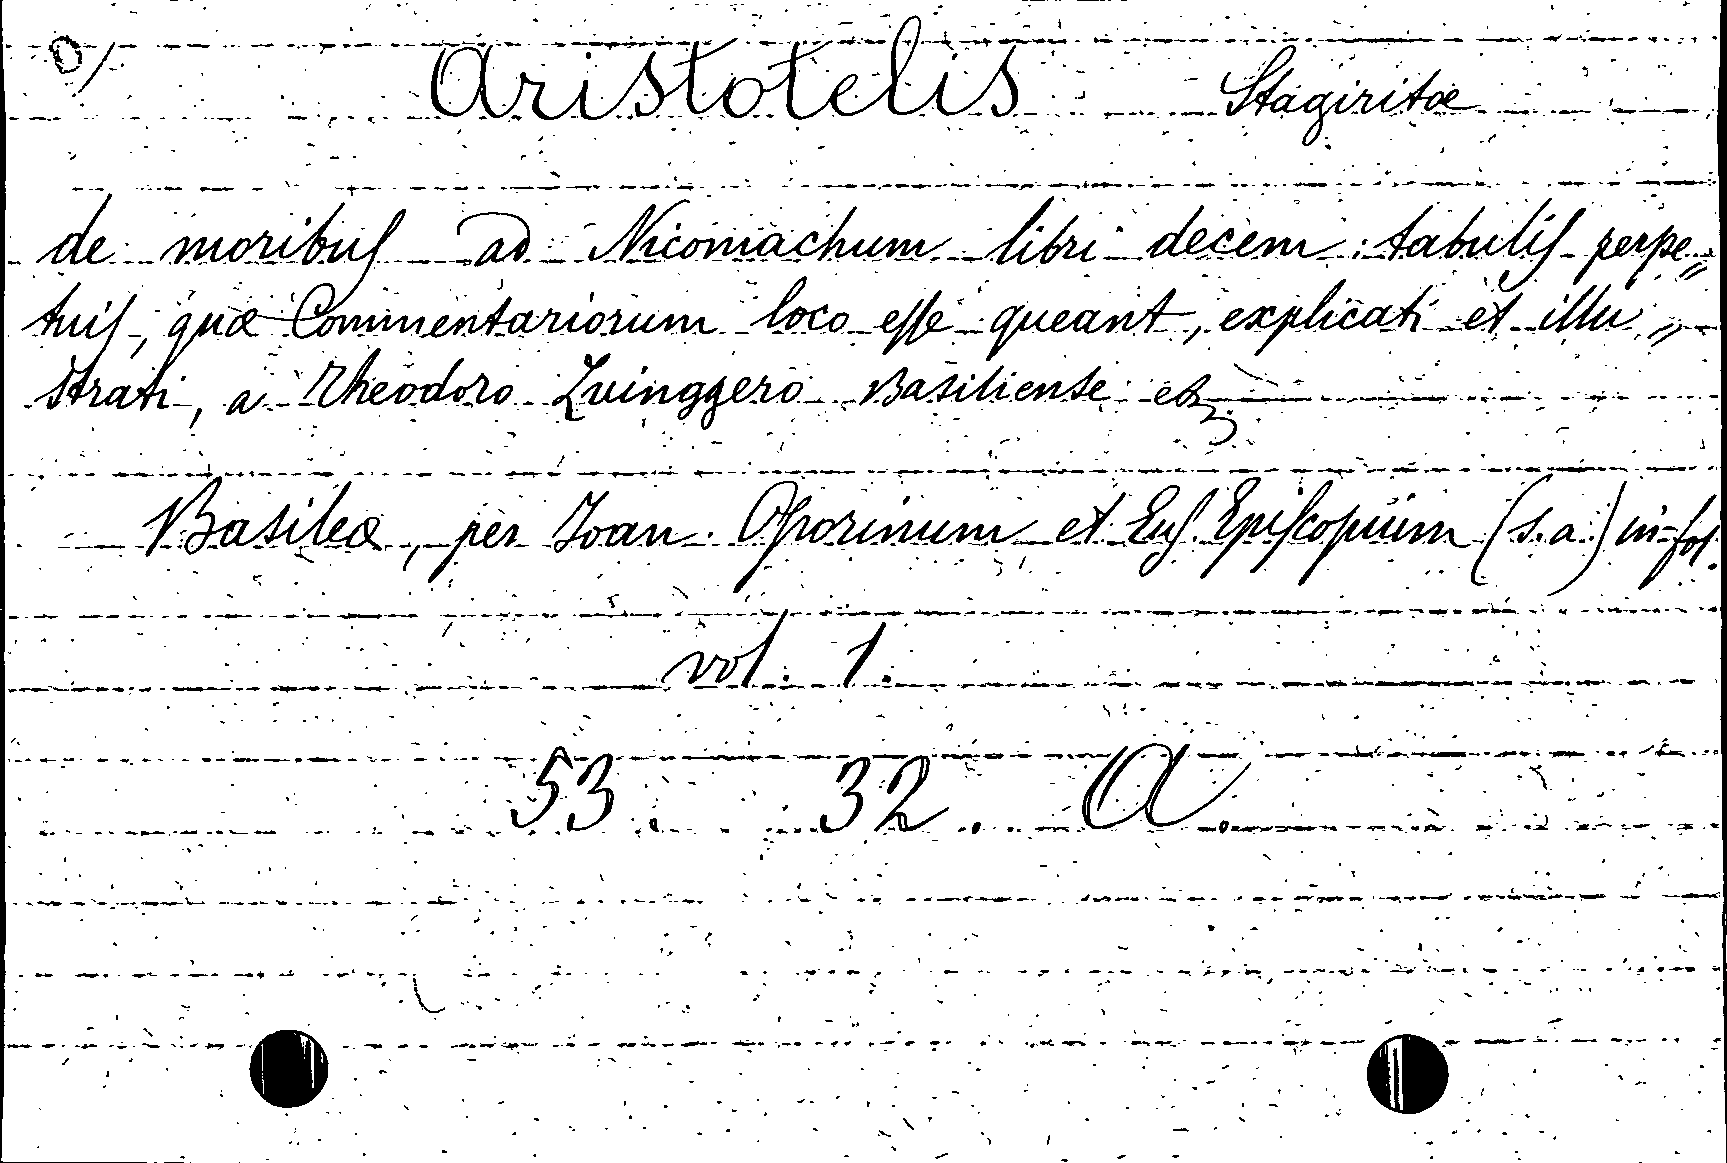 D/ Aristotelis Stagiritæ
de moribus ad Nicomachum libri decem: tabulis perpe„
tuis, quæ Commentariorum loco esse queant, explicati et illu„
strati, a Theodoro Zvinggero Basiliense etz.
Basileæ, per Joan. Oporinum et Eus. Episcopium (s.a.) in-fol.
vol. 1.
53. 32. A.